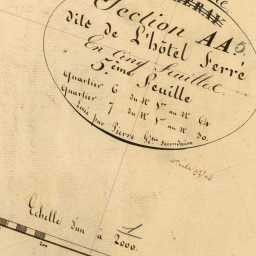 Section AA5
dite de l'hôtel Ferré
En Cinq Feuilles
5ème Feuille
Quartier 6 du N° 1er au N° 64
Quartier 7 du N° 1er au N° 30
Levé par Pierre
Echelle d'un à 2000.